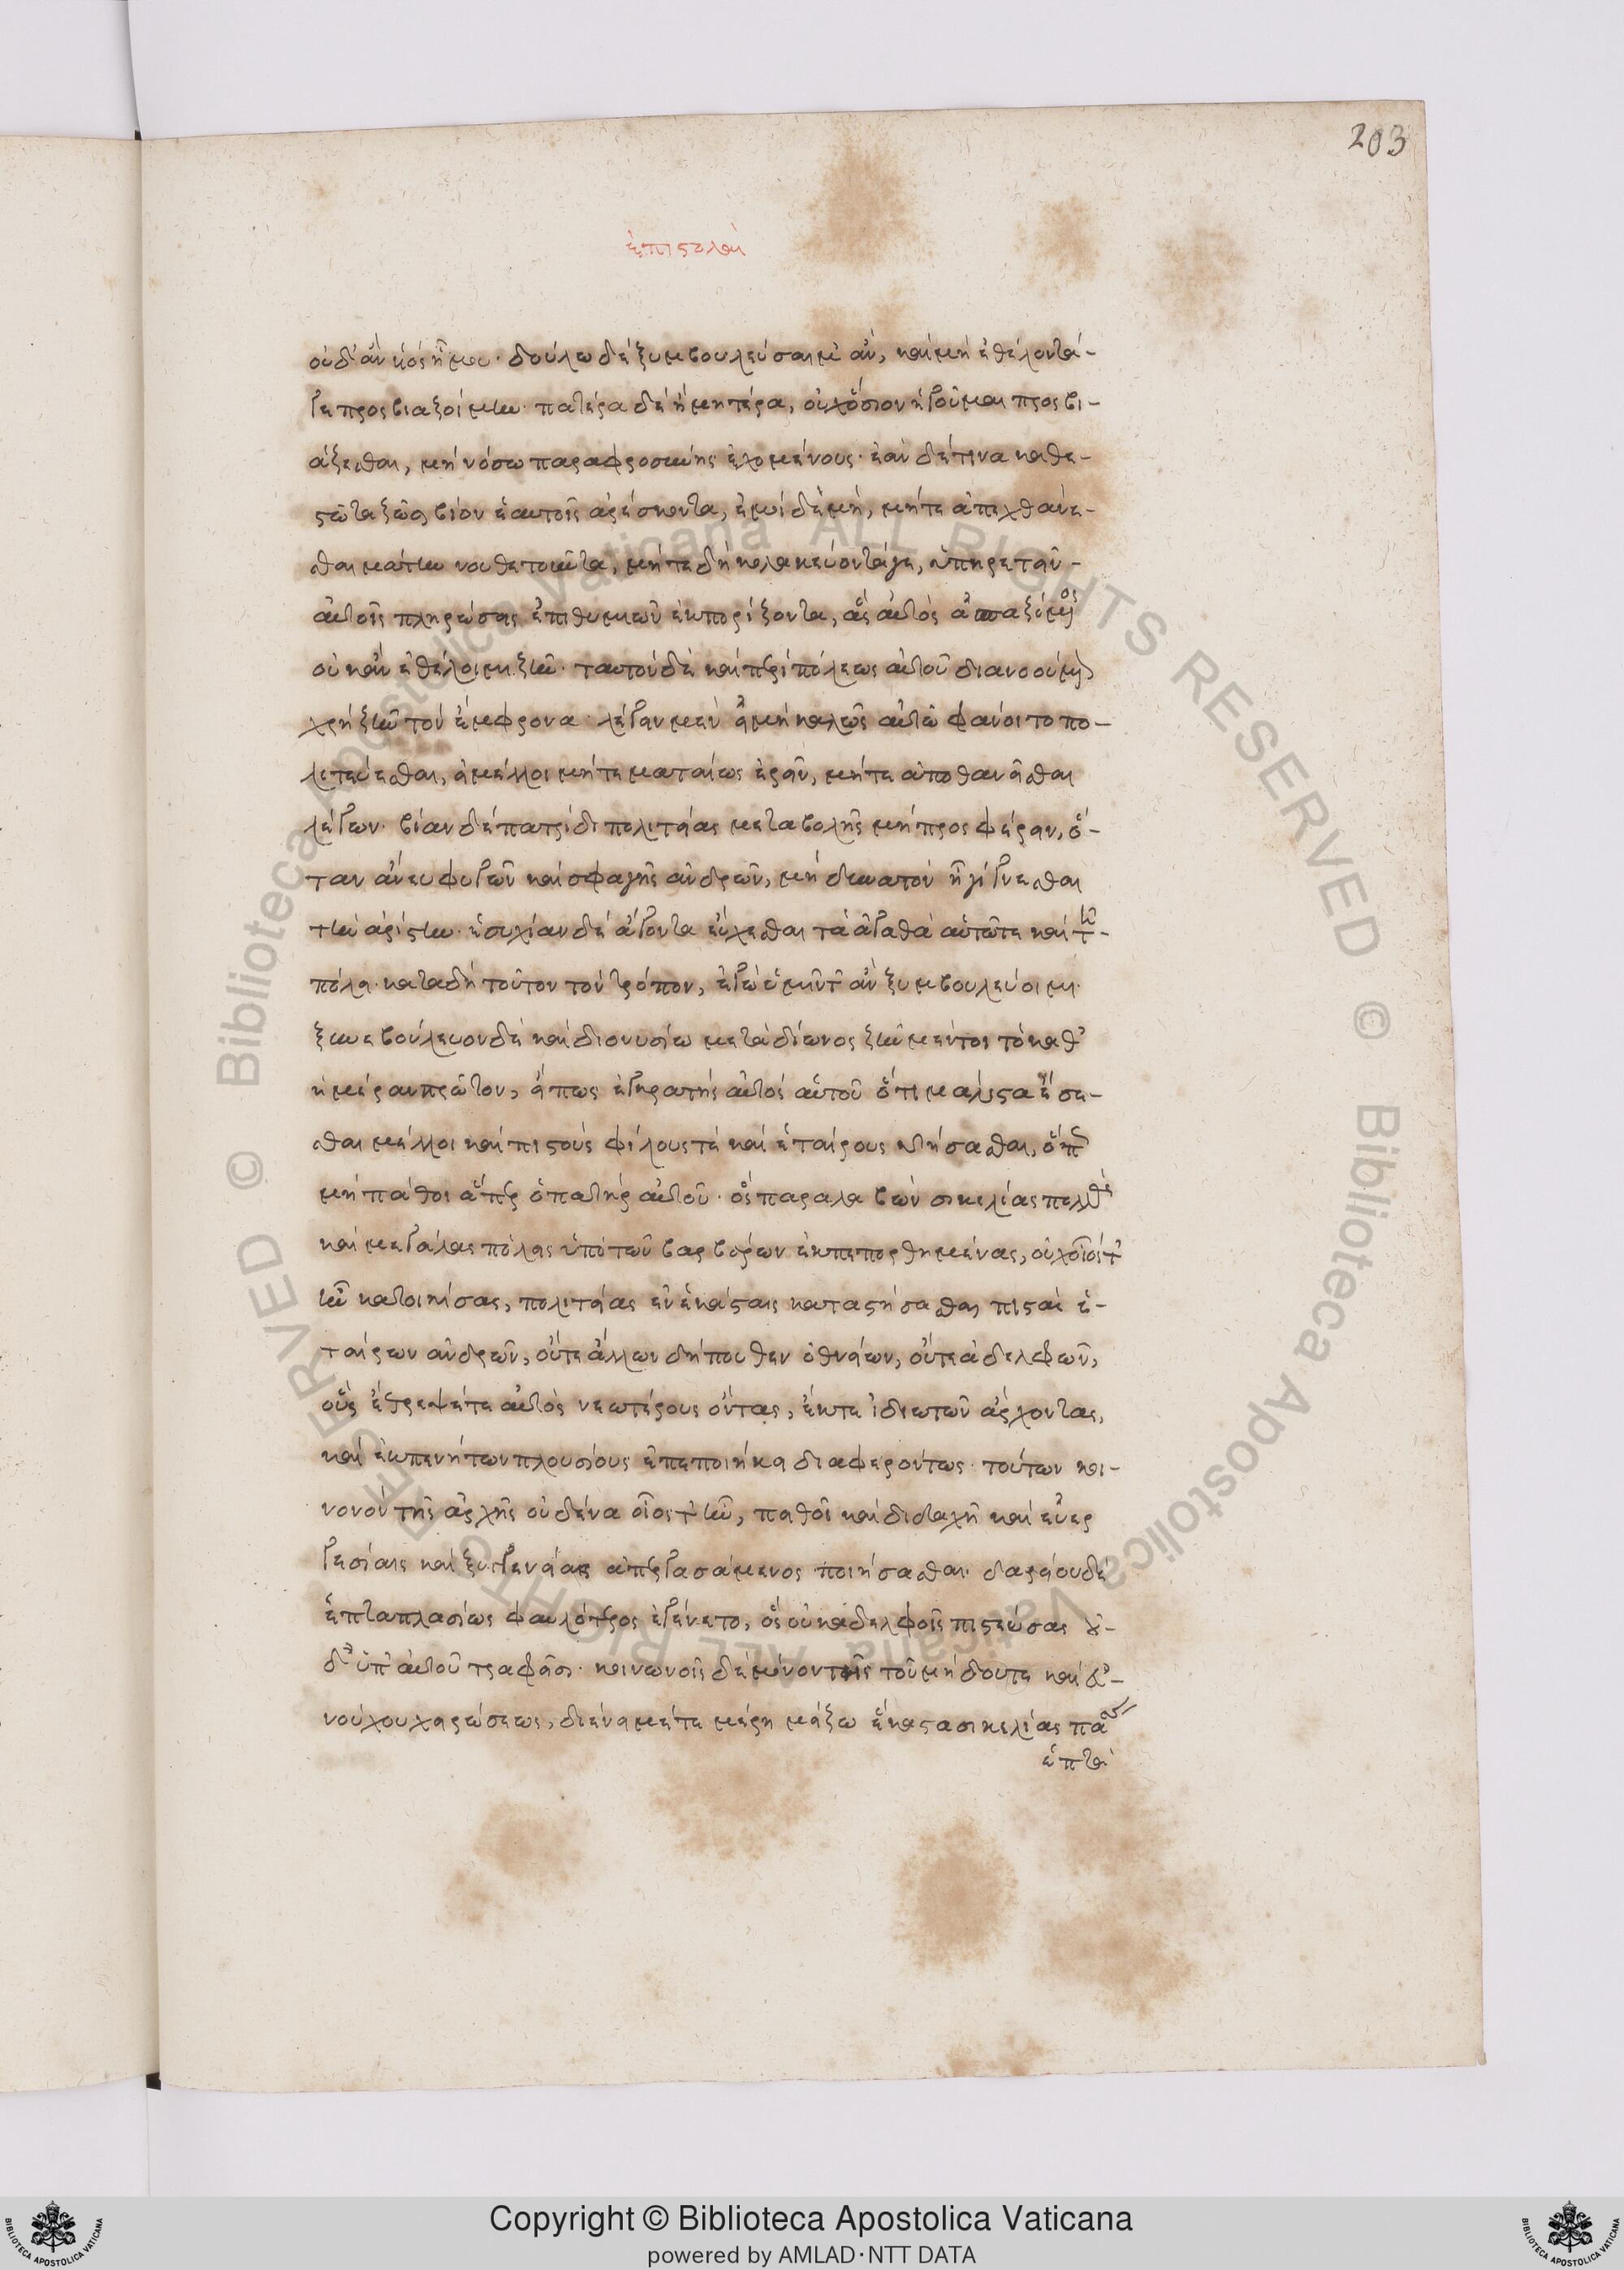 203
ἐπιστολαὶ
οὐδ' ἂν υἱός ᾖ μου· δούλω δὲ ξυμβουλεύσαιμ' ἂν, καὶ μὴ ἐθέλοντά-
γε προσβιαζοίμην· πατέρα δὲ ἢ μητέρα, οὐχ ὅσιον ἡγοῦμαι προσβι-
άζεσθαι, μὴ νόσω παραφροσύνης ἐχομένους· ἐὰν δέ τινα καθε-
στῶτα ζῶσι βίον ἑαυτοῖς ἀρέσκοντα, ἐμοὶ δὲ μὴ, μήτε ἀπεχθάνε-
σθαι μάτην νουθετοῦντα, μήτε δὴ κολακεύοντάγε, ὑπηρετεῖν
αὐτοῖς πληρώσεις ἐπιθυμιῶν ἐκπορίζοντα, ἃς αὐτὸς ἀσπαζόμενος
οὐκ ἂν ἐθέλοιμι ζῆν· ταυτὸν δὲ καὶ περὶ πόλεως αὐτοῦ διανοούμενον
χρὴ ζῆν τὸν ἔμφρονα· λέγειν μὲν εἰ μὴ καλῶς αὐτῶ φαίνοιτο πο-
λιτεύεσθαι, εἰ μέλλοι μήτε ματαίως ἐρεῖν, μήτε ἀποθανεῖσθαι
λέγων· βίαν δὲ πατρίδι πολιτείας μεταβολῆς μὴ προσφέρειν, ὅ-
ταν ἄνευ φυγῶν καὶ σφαγῆς ἀνδρῶν, μὴ δυνατὸν ᾖ γίγνεσθαι
τὴν ἀρίστην· ἡσυχίαν δὲ ἄγοντα εὔχεσθαι τὰ ἀγαθὰ αὑτῶτε καὶ τῆ
πόλει· κατὰ δὴ τοῦτον τὸν τρόπον, ἐγὼ ὑμῖν τ' ἂν ξυμβουλεύοιμι·
ξυνεβούλευον δὲ καὶ διονυσίω μετὰ δίωνος ζῆν μέντοι τὸ καθ'
ἡμέραν πρῶτον, ὅπως ἐγκρατὴς αὐτὸς αὑτοῦ ὅτι μάλιστα ἔσε-
σθαι μέλλοι καὶ πιστοὺς φίλους τὲ καὶ ἑταίρους κτήσασθαι, ὅπως
μὴ πάθοι ἅπερ ὁ πατὴρ αὐτοῦ· ὃς παραλαβὼν σικελίας πολλὰς
καὶ μεγάλας πόλεις ὑπὸ τῶν βαρβάρων ἐκπεπορθημένας, οὐχ οἷός τ'
ἦν κατοικίσας, πολιτείας ἐν ἑκάσταις καταστήσασθαι πιστὰς ἑ-
ταίρων ἀνδρῶν, οὔτε ἄλλων δήποθεν ὀθνείων, οὔτε ἀδελφῶν,
οὓς ἔθρεψέ τε αὐτὸς νεωτέρους ὄντας, ἔκ τε ἰδιωτῶν ἄρχοντας,
καὶ ἐκ πενήτων πλουσίους ἐπεποιήκει διαφερόντως· τούτων κοι-
νονὸν τῆς ἀρχῆς οὐδένα οἷός τ' ἦν, πειθοῖ καὶ διδαχῆ καὶ εὐερ
γεσίαις καὶ ξυγγενείαις ἀπεργασάμενος ποιήσασθαι· δαρείου δὲ
ἑπταπλασίως φαυλότερος ἐγένετο, ὃς οὐκ ἀδελφοῖς πιστεύσας οὐ-
δ' ὑπ' αὐτοῦ τραφεῖσι· κοινωνοῖς δὲ μόνον τοῖς τοῦ μήδου τε καὶ εὐ-
νούχου χειρώσεως, διένειμέ τε μέρη μείζω ἕκαστα σικελίας πάσης
ἑπτὰ
Copyright © Biblioteca Apostolica Vaticana
powered by AMLAD·NTT DATA